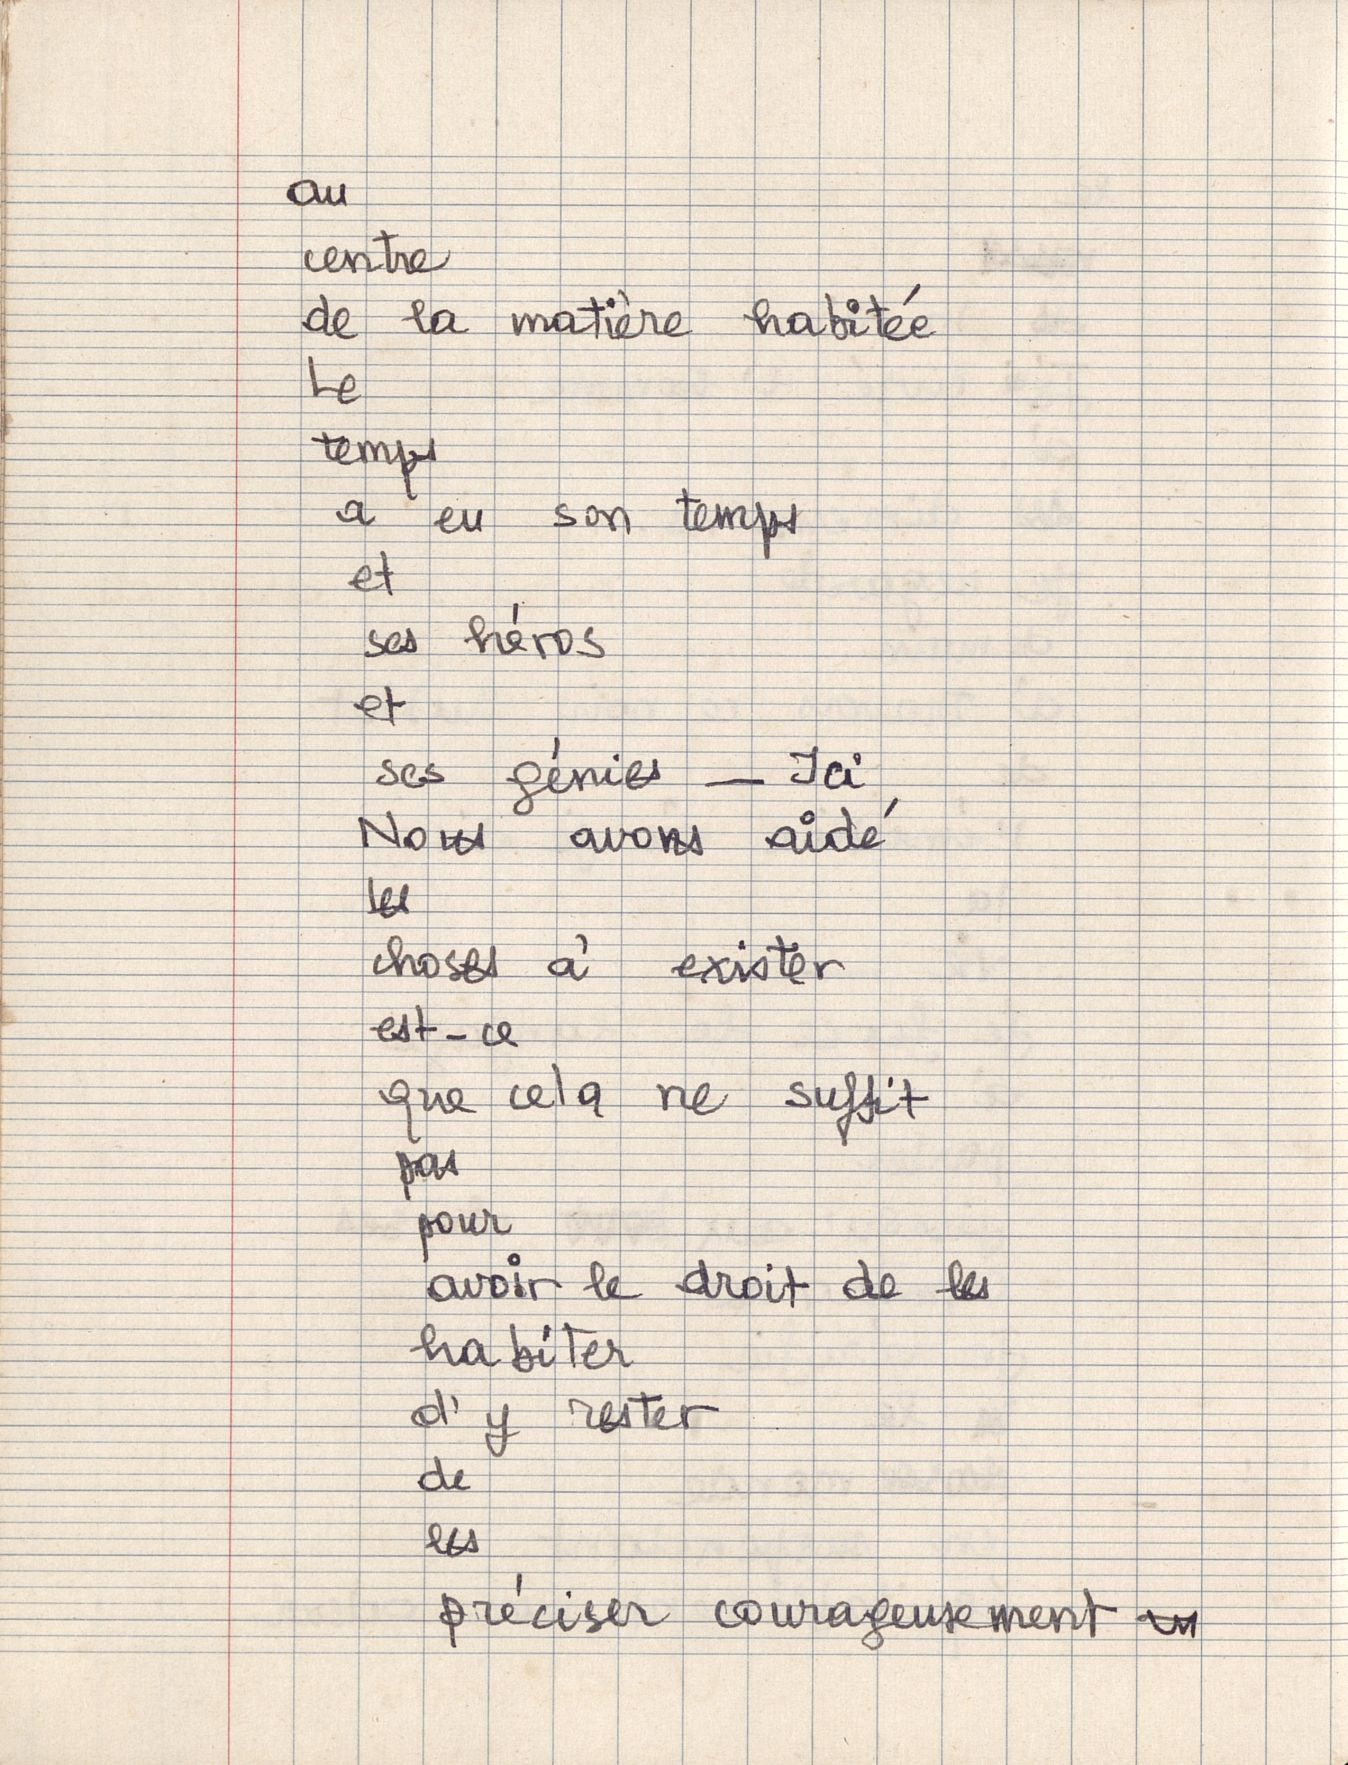 au
centre
de la matière habitée
Le
temps
a eu son temps
et
ses héros
et
ses génies — Ici
Nous avons aidé
les
choses à exister
est-ce
que cela ne suffit
pas
pour
avoir le droit de les
habiter
d'y rester
de
les
préciser courageusement